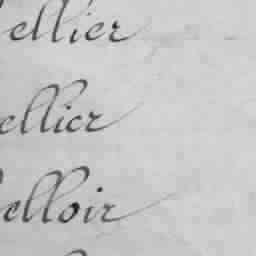 ellier
ellier
elloir